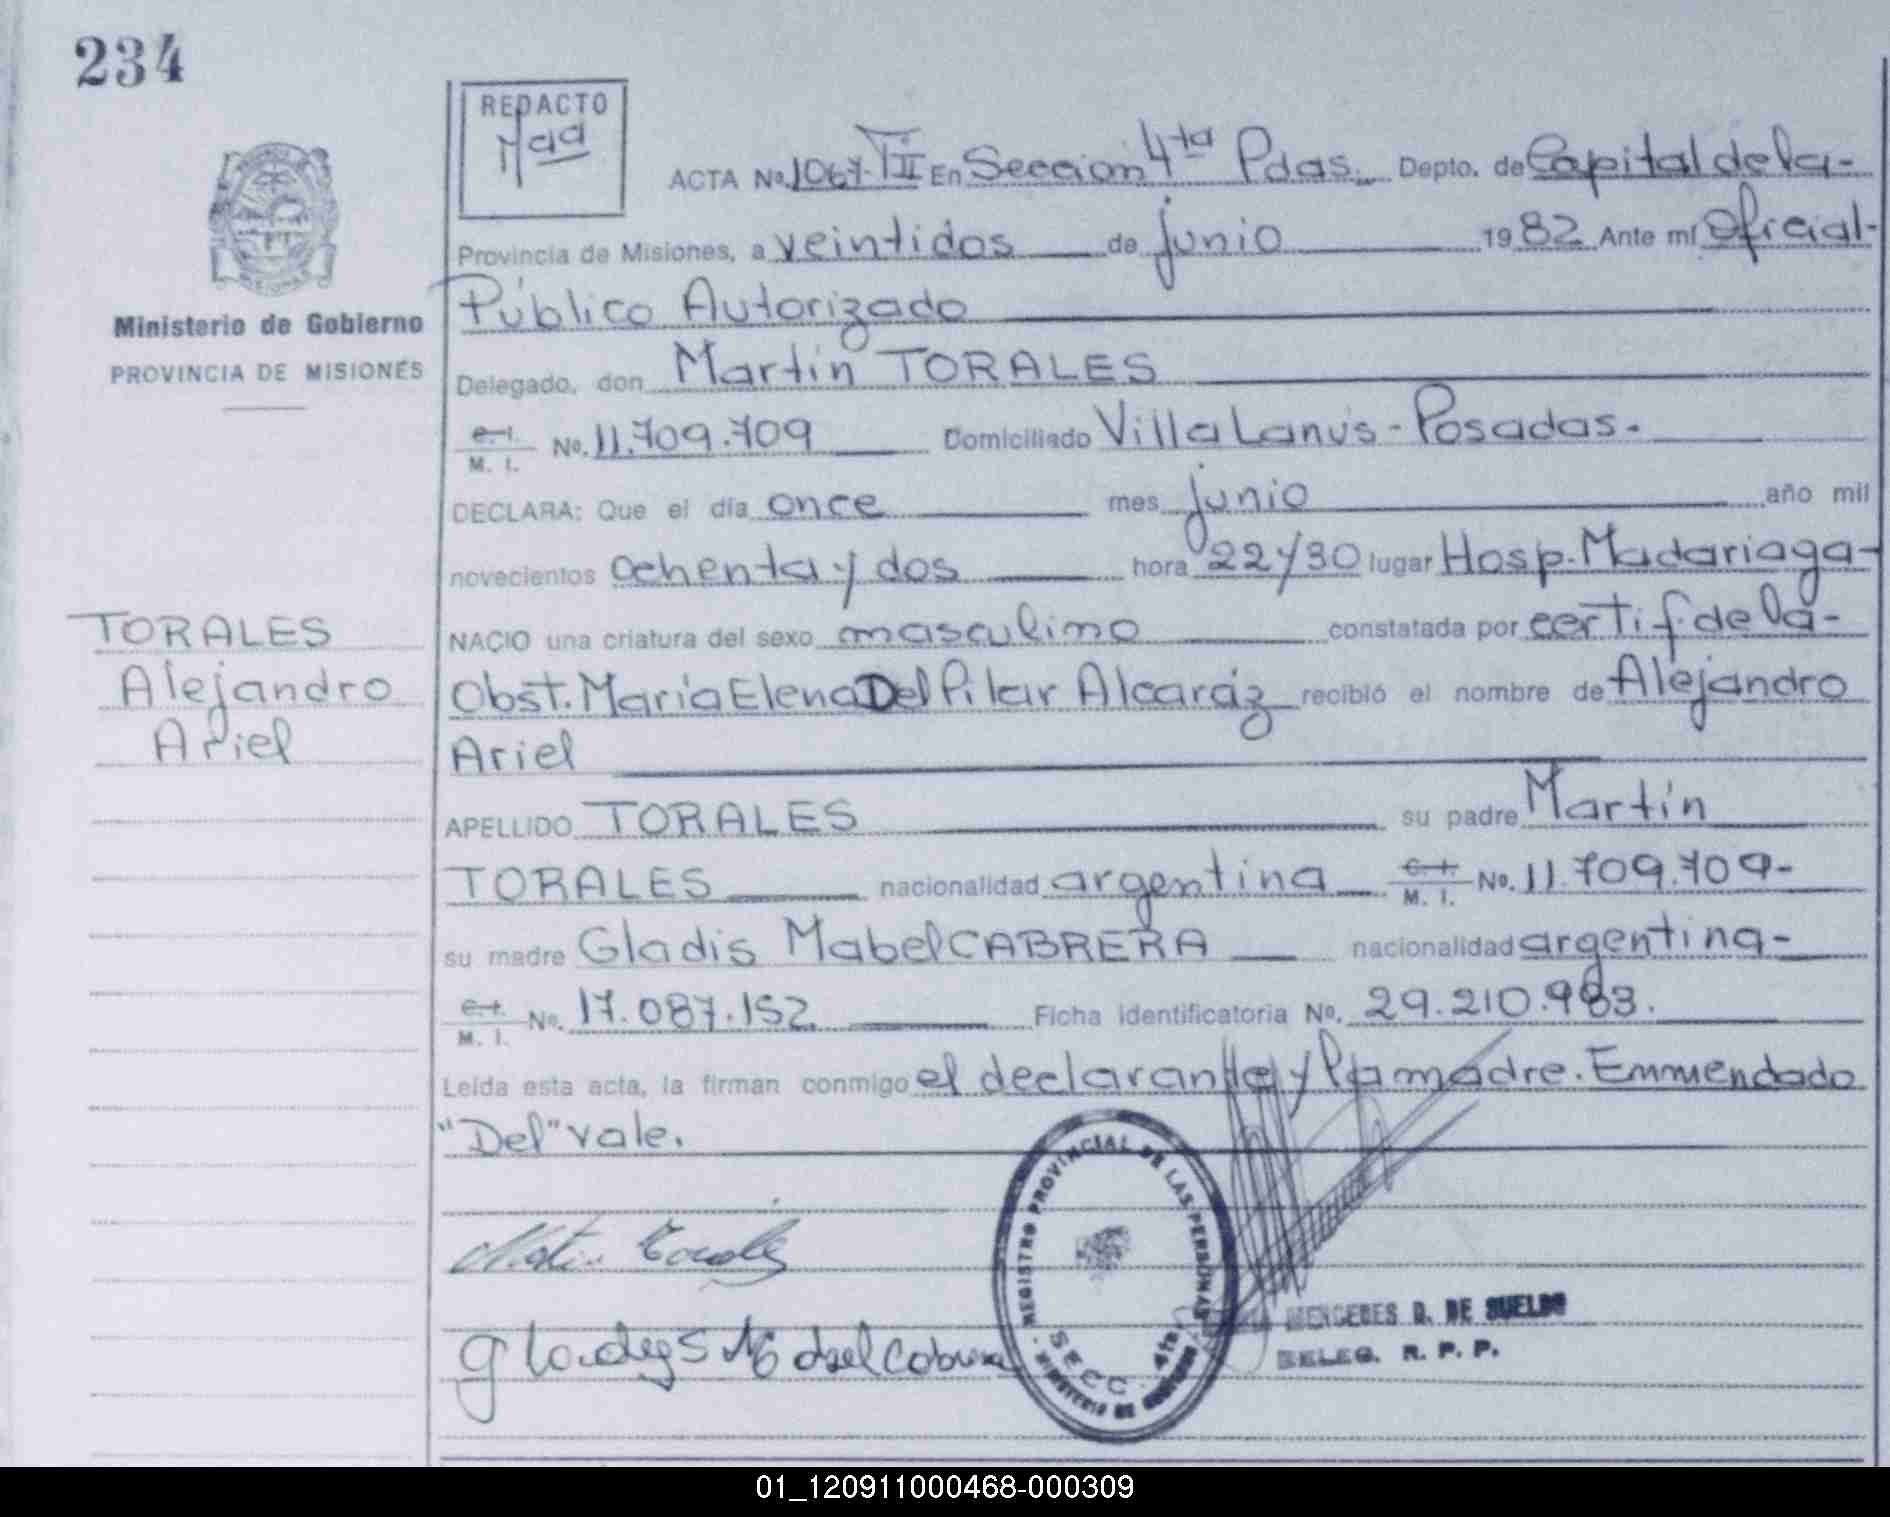 234
REDACTO
ACTA No. 1067-TII En Sección 4ta Pdas. Depto. de Capital de la-
Provincia de Misiones, a veintidos de junio 1982 Ante mí Oficial-
Ministerio de Gobierno
PROVINCIA DE MISIONES
Público Autorizado
Delegado, don Martín TORALES
C. I. M. I. No. 11.709.709 Domiciliado Villa Lanús - Posadas.
DECLARA: Que el día once mes junio año mil
novecientos ochenta y dos hora 22y30 lugar Hosp. Madariaga-
TORALES
Alejandro
Ariel
NACIO una criatura del sexo masculino constatada por certif. de la-
Obst. María Elena Del Pilar Alcaráz recibió el nombre de Alejandro
Ariel
APELLIDO TORALES su padre Martín
TORALES nacionalidad argentina C. I. M. I. No. 11.709.709-
su madre Gladis Mabel CABRERA nacionalidad argentina-
C. I. M. I. No. 17.087.152 Ficha identificatoria No. 29.210.983.
Leída esta acta, la firman conmigo el declarante y la madre. Enmmendado
"Del" vale.
REGISTRO PROVINCIAL DE LAS PERSONAS
SECC. 4ta
MINISTERIO DE GOBIERNO
MERCEDES D. DE SUELDO
DELEG. R. P. P.
01_120911000468-000309